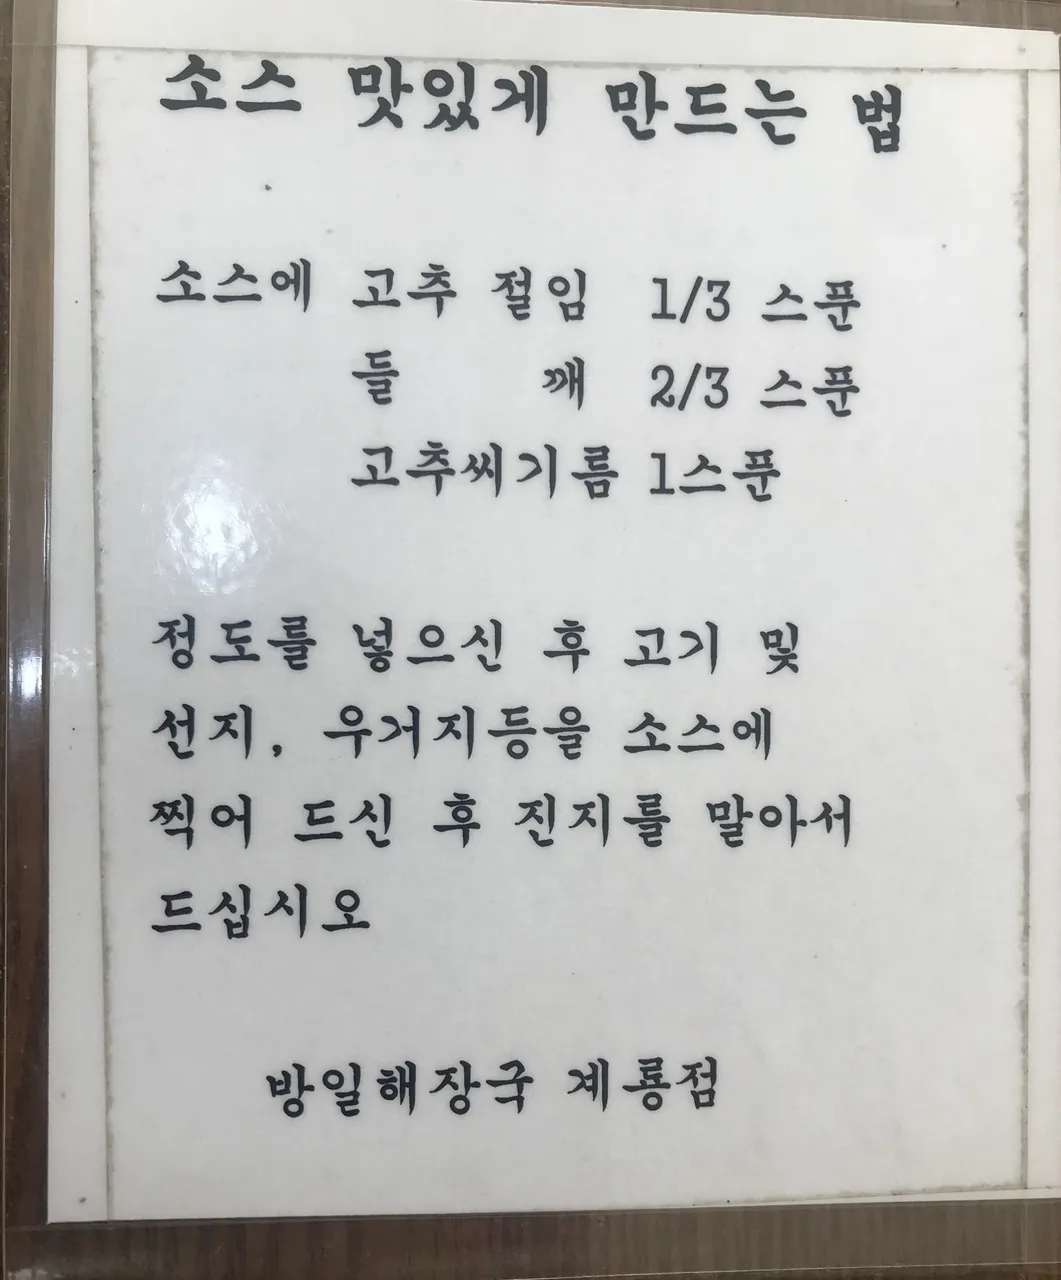 소스 맛있게 만드는 법
소스에 고추 절임 1/3 스푼
들 깨 2/3 스푼
고추씨기름 1스푼
정도를 넣으신 후 고기 및
선지, 우거지등을 소스에
찍어 드신 후 진지를 말아서
드십시오
방일해장국 계룡점